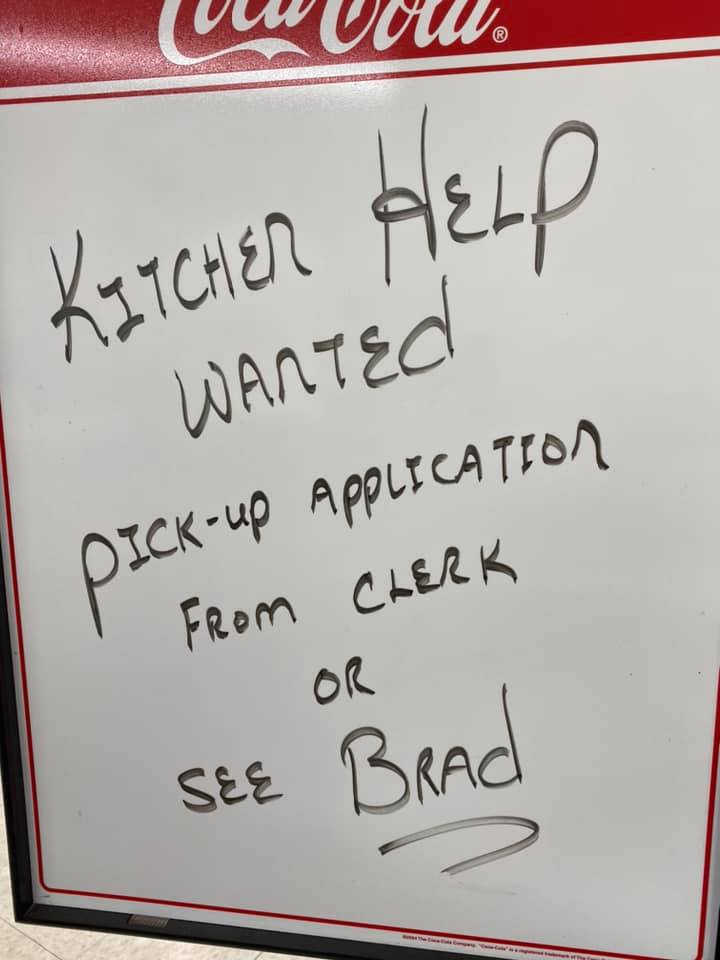 Coca-Cola®
KITCHEN HELP
WANTED
PICK-UP APPLICATION
FROM CLERK
OR
SEE BRAD
©2004 The Coca-Cola Company. "Coca-Cola" is a registered trademark of The Coca